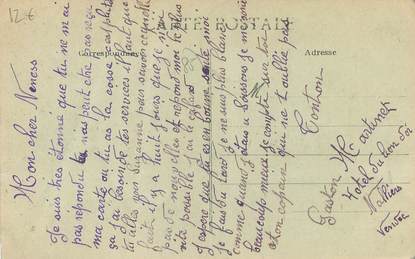 12 €
CARTE POSTALE
Correspondance
Adresse
Mon cher Veness
Je suis très étonné que tu ne m'ai
pas répondu tu n'a peut être pas reçu
ma carte ou tu as la cosse c'est plutôt
ça j'ai besoin de tes services il faut que
tu ailles voir Suzanne pour savoir ce qu'elle
fait il y a huit jours que je n'ai
pas de nouvelles et répond moi le plus
vite possible j'ai le cafard
J'espère que tu es en bonne santé moi
je fais du lard je ne suis plus blanc
comme quand j'étais à Soissons je me porte
beaucoup mieux je compte sur toi
ton copain qui ne t'oublie pas
Tonton
Gaston Martinez
Hotel du Lion d'or
Nalliers
Vendée